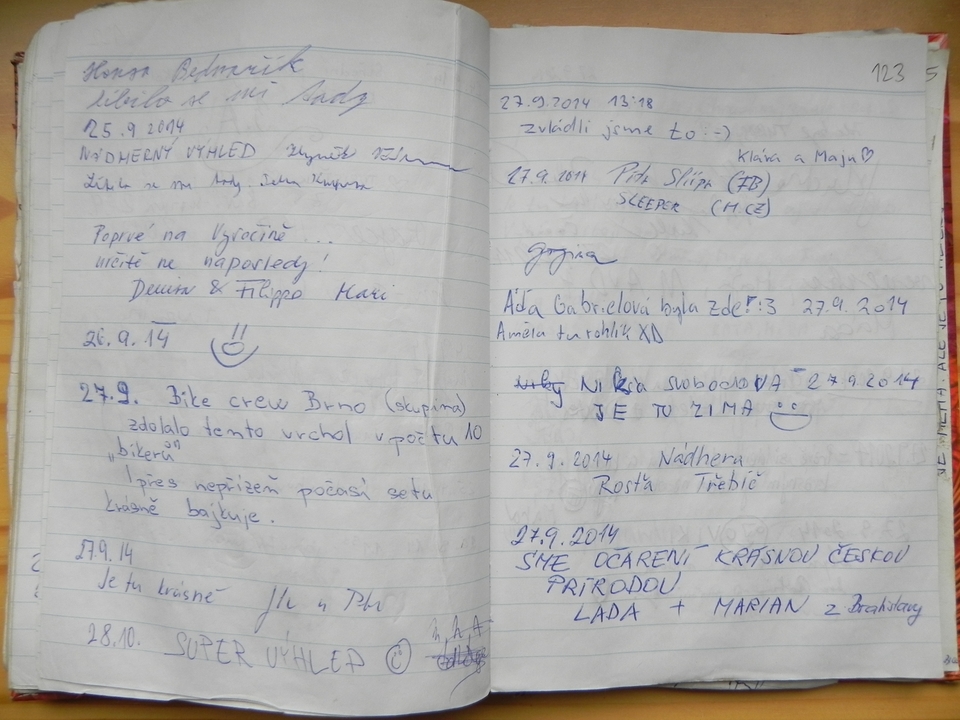 Honza Bednařík
líbilo se mi tady
25.9 2014
NÁDHERNÝ VÝHLED
Líbilo se mi tady.
Poprvé na Vyročině ...
určitě ne naposledy!
& Filippo
26.9.14
27.9. Bike crew Brno (skupina)
zdolalo tento vrchol v počtu 10
„bikerů"
I přes nepřízeň počasí se tu
krásně bajkuje.
27.9.14
Je tu krásně
28.10. SUPER VÝHLED
123
27.9.2014 13:18
zvládli jsme to :-)
Klára a Maja ♡
27.9.2014 (FB)
SLEEPER (H.CZ)
Áďa Gabrielová byla zde! :3 27.9.2014
Améla tu rohlík XD
Nikča svobodoVA - 27 9 2014
JE TU ZIMA
27.9.2014 Nádhera
Rosťa Třebíč
27.9.2014
SME OČARENÍ KRÁSNOU ČESKOU
PRÍRODOU
LADA + MARIAN z Bratislavy